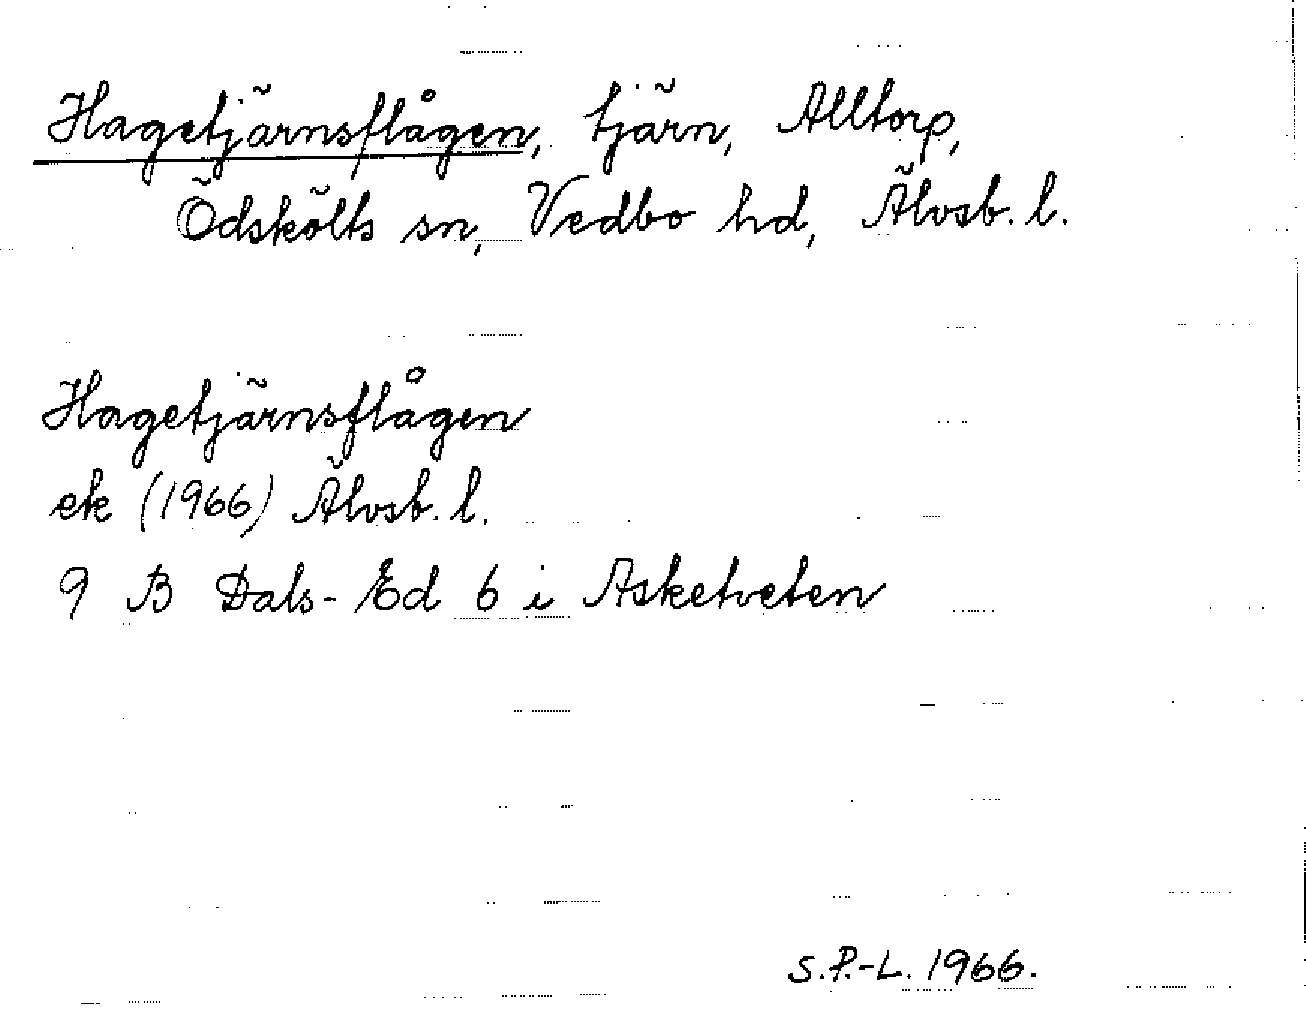 Hagetjärnsflågen, tjärn, Alltorp,
Ödskölts sn, Vedbo hd, Älvsb. l.
Hagetjärnsflågen
ek (1966) Älvsb. l.
9 B Dals-Ed 6 i Asketveten
S.P.-L. 1966.